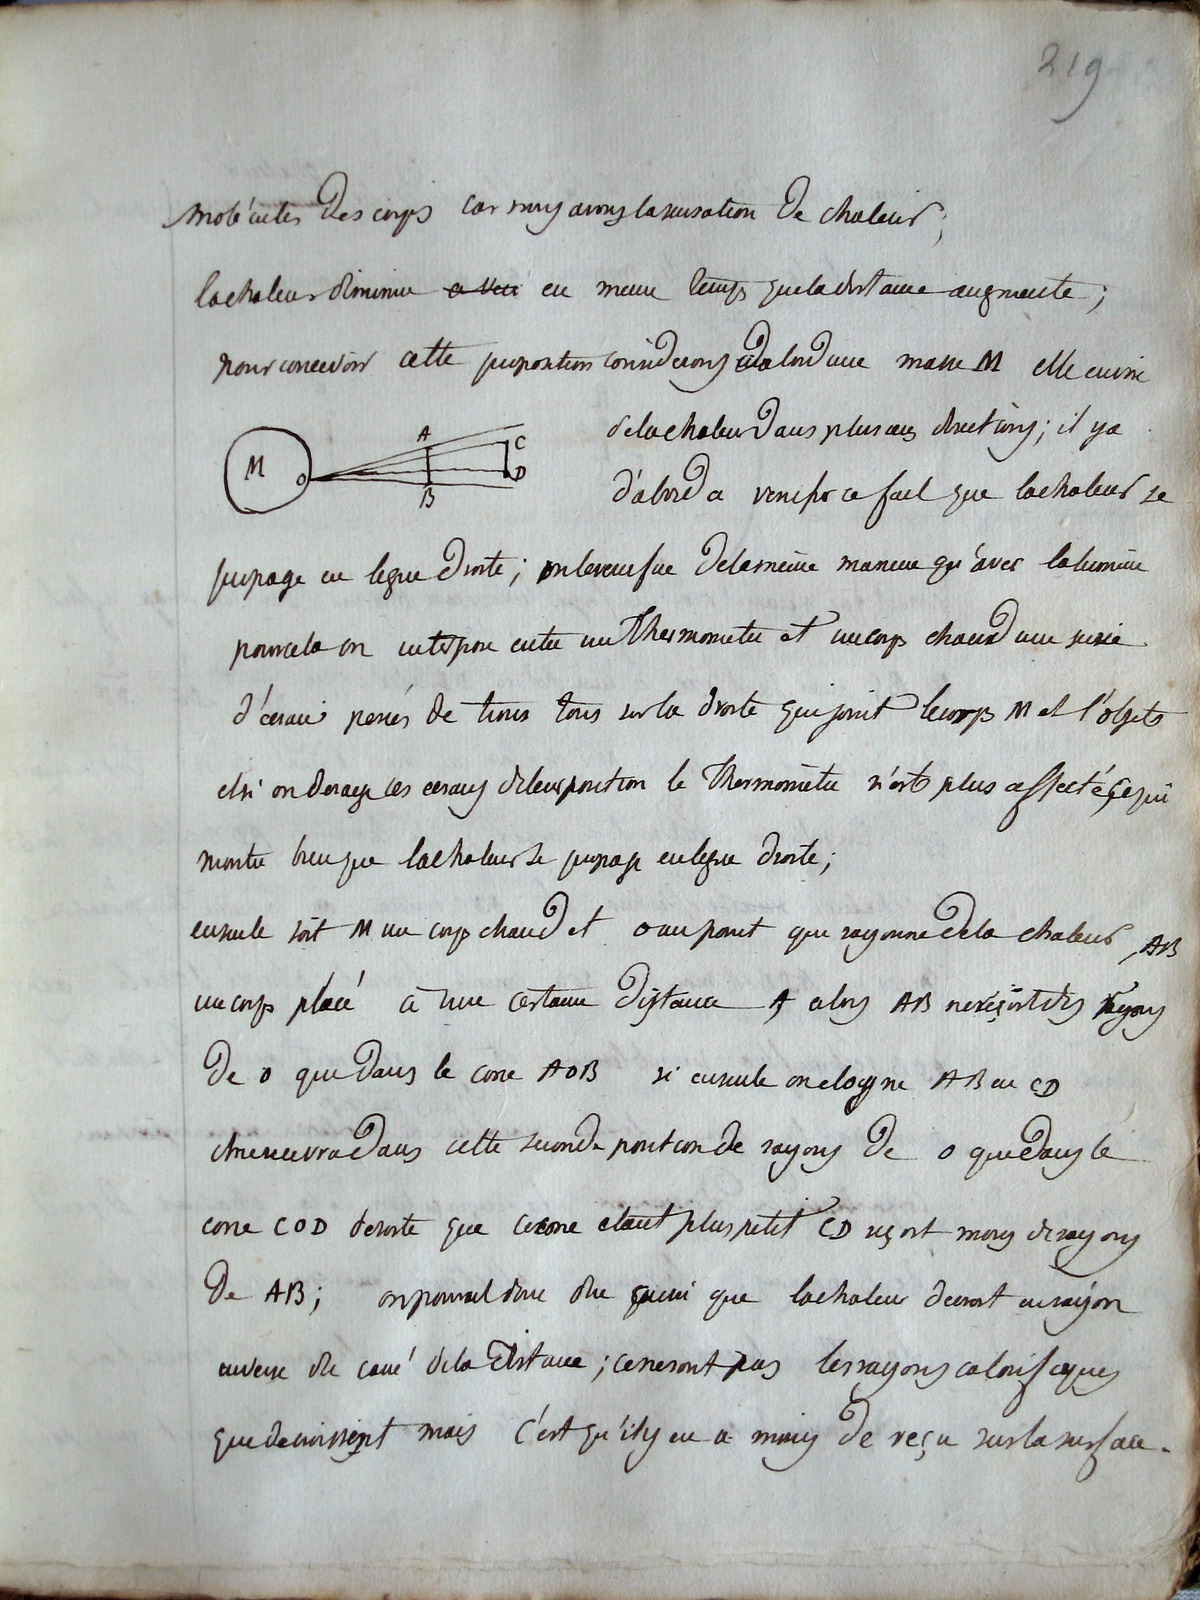 219
molécules des corps car nous avons la sensation de chaleur;
la chaleur diminue en meme temps que la distance augmente;
pour concevoir cette proposition considerons d'abord une masse M elle envoie
de la chaleur dans plusieurs directions; il y a
M O A B C D
d'abord a verifier ce fait que la chaleur se
propage en ligne droite; on le verifie de la meme maniere qu'avec la lumiere
pour cela on interpose entre un Thermometre et un corps chaud une serie
d'ecrans percés de trous tous sur la droite qui joint le corps M et l'objets
et si on derange ces ecrans de leur position le Thermomètre n'est plus affecté, ce qui
montre bien que la chaleur se propage en ligne droite;
ensuite soit M un corps chaud et o un point que rayonne de la chaleur, AB
un corps placé à une certaine distance alors AB ne reçoit des rayons
de o que dans le cone AOB si ensuite on eloigne AB en CD
il ne recevra dans cette seconde position de rayons de o que dans le
cone COD desorte que ce cone etant plus petit CD reçoit moins de rayons
de AB; on pourrait donc dire que la chaleur decroit en raison
inverse du carré de la distance; ce ne sont pas les rayons calorifiques
que decroissent mais c'est qu'il y en a moins de reçu sur la surface.